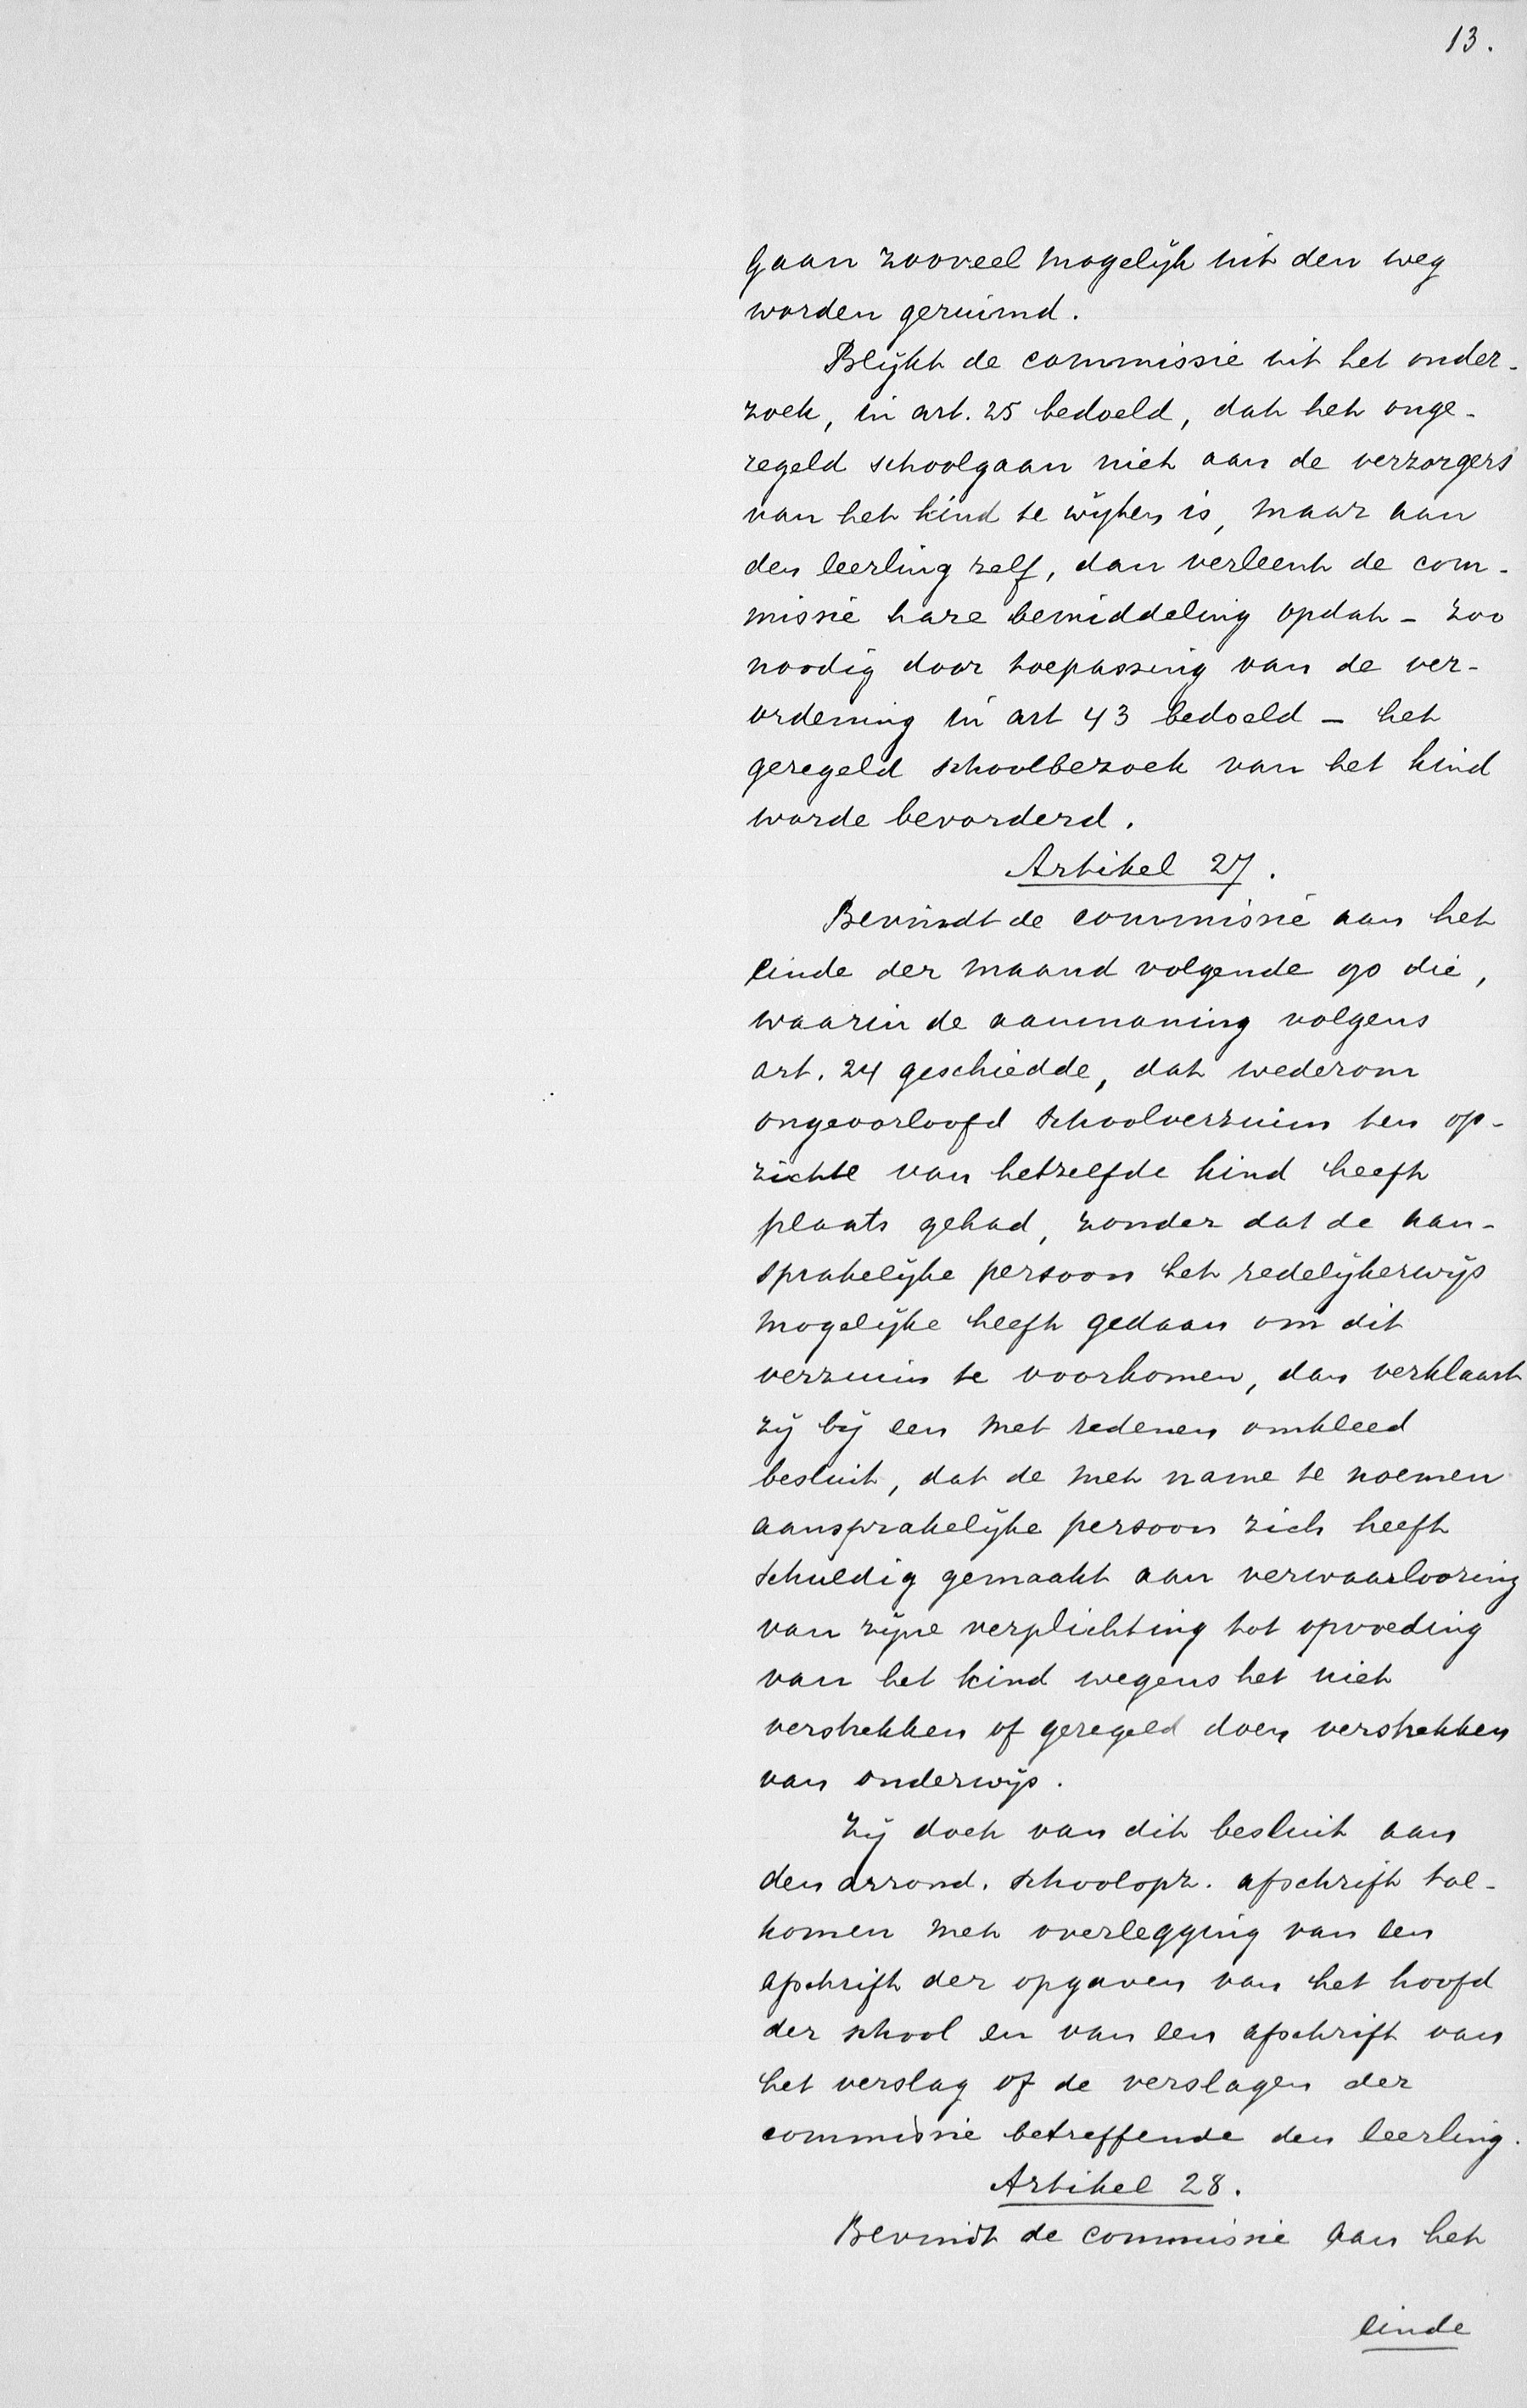 13.
gaan zooveel mogelijk uit den weg
worden geruimd.
Blijkt de commissie uit het onder-
zoek, in art. 25 bedoeld, dat het onge-
regeld schoolgaan niet aan de verzorgers
van het kind te wijten is, maar aan
den leerling zelf, dan verleent de com-
missie hare bemiddeling opdat - zoo
noodig door toepassing van de ver-
ordening in art 43 bedoeld - het
geregeld schoolbezoek van het kind
worde bevorderd.
Artikel 27.
Bevindt de commissie aan het
einde der maand volgende op die,
waarin de aanmaning volgens
art. 24 geschiedde, dat wederom
ongeoorloofd schoolverzuim ten op-
zichte van hetzelfde kind heeft
plaats gehad, zonder dat de aan-
sprakelijke persoon het redelijkerwijs
mogelijke heeft gedaan om dit
verzuim te voorkomen, dan verklaart
zij bij een met redenen omkleed
besluit, dat de met name te noemen
aansprakelijke persoon zich heeft
schuldig gemaakt aan verwaarloozing
van zijne verplichting tot opvoeding
van het kind wegens het niet
verstrekken of geregeld doen verstrekken
van onderwijs.
Zij doet van dit besluit aan
den arrond. schoolopz. afschrift toe-
komen met overlegging van een
afschrift der opgaven van het hoofd
der school en van een afschrift van
het verslag of de verslagen der
commissie betreffende den leerling.
Artikel 28.
Bevindt de commissie aan het
einde